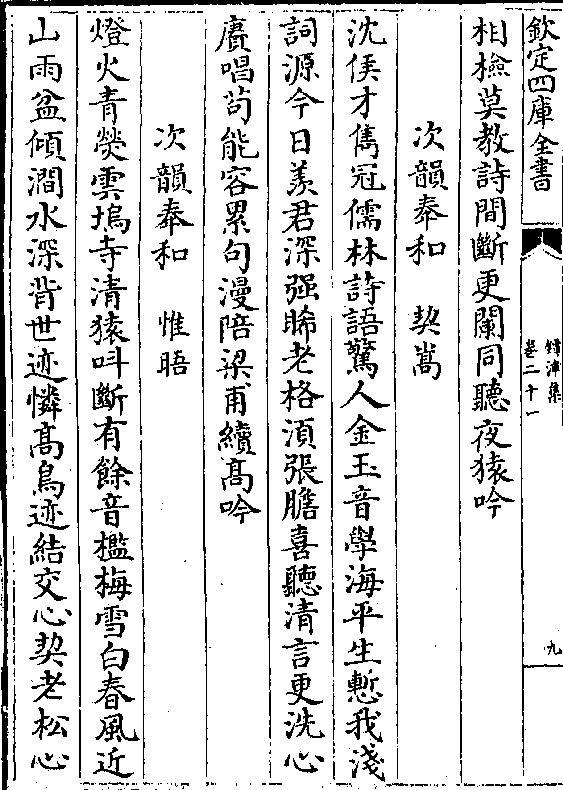 欽定四庫全書
鐔津集
卷二十一
九
相撿莫教詩間斷更闌同聽夜猿吟
次韻奉和 契嵩
沈侯才雋冠儒林詩語驚人金玉音學海平生慙我淺
詞源今日羨君深强睎老格湏張膽喜聽清言更洗心
賡唱茍能容累句漫陪梁甫續髙吟
次韻奉和 惟晤
燈火青熒雲塢寺清猿呌斷有餘音檻梅雪白春風近
山雨盆傾澗水深背世迹憐髙鳥迹結交心契老松心